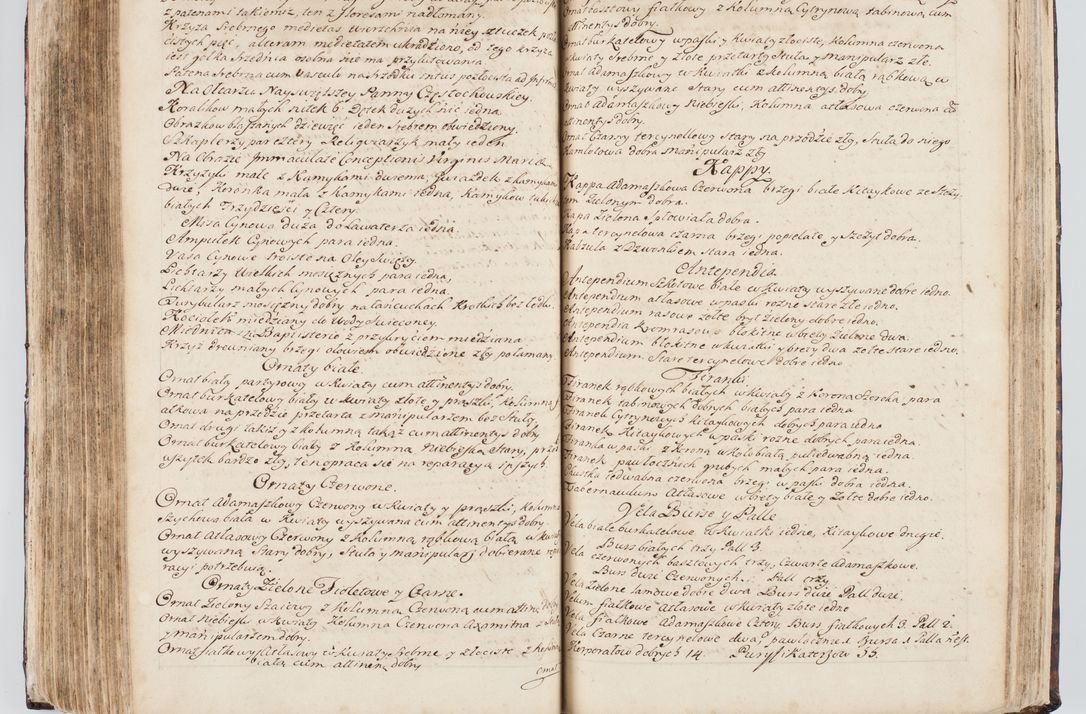 z patenami takiemisz, ten z floresami nadłomany.
Krzyża Srebrnego medietas wierzchnia na niey sztuczek
cistych pięć, alteram medietatem ukradziono, od tego krzyża
iest gałka szrzednia osobna nie ma przylutowania
Patena srebrna cum Vasculo na szrodku intus pozłocista ad
Na Ołtarzu Nayswiętszey Panny Częstochowskiey.
Koralikow małych nitek 6. Sztek duzych nic iedna.
Obrazkow blaszanych dziewięć ieden Srebrem obwiedziony.
Szkaplerzy par cztery Religwiarzyk mały ieden
Na Obrazie Immaculatæ Conceptionis Virginis Mariæ
Krzyżyk małe z Kamykami dwiema, gwiazdek z kamykami
dwie, Koronka mała z Kamykami iedna, Kamykow
białych Trzydzieści y Cztery.
Misa Cynowa duża do Lawaterza iedna.
Ampułek Cynowych para iedna.
Vasa Cynowe troiste na Oley Swięty.
Lichtarzy Wielkich mosięznych para iedna,
Lichtarzy małych Cynowych para iedna.
Turybularz mosięzny dobry na łańcuchach krotkich bez łodki.
Kociołek miedziany do Wody Swięconey.
Miednica in Baptisterio z przykryciem miedziana
Krzyż drewniany brzegi ołowiem obwiedzione zły połamany.
Ornaty białe.
Ornat biały parterowy w kwiaty cum attinentys dobry.
Ornat burkatelowy biały w kwiaty złote y prążki, kolumna
ałkowa na przodzie przetarta z manipularzem bez stuły
Ornat drugi takisz y z kolumną takąż cum attinentys dobry
Ornat burkatelowy biały z Kolumną Niebieską stary, przod
wszytek bardzo zły, ten opraca się na reparacyą inszych
Ornaty Czerwone.
Ornat Adamaszkowy Czerwony w kwiaty y prązki, kolumna
Szychowa biała w Kwiaty wyszywana cum attinentys dobry.
Ornat Atłasowy Czerwony z Kolumną rąbkową białą w kwiaty
wyszywaną Stary dobry, Stuła y manipularz dobierane
racyi potrzebują.
Ornaty Zielone Fioletowe y Czarne.
Ornat Zielony Szaiowy z Kolumną Czerwoną cum attinen dobry
Ornat Niebieski w kwiaty Kolumna Czerwona axamitna z stułą
y manipularzem dobry.
Ornat fiałkowy atłasowy w kwiaty srebrne y złociste z Kolumną
białą cum attinen dobry
Ornat
Ornat tostowy fiałkowy z Kolumną Cytrynową tabinową cum
attinentys dobry.
Ornat burkatelowy w paski y kwiaty złociste, Kolumna czerwona
w kwiaty srebrne y złote przetarty Stuła y manipularz złe.
Ornat adamaszkowy w kwiatki z Kolumną białą rąbkową w
kwiaty wyszywane stary cum attinentys dobry
Ornat adamaszkowy niebieski, Kolumna atłasowa czerwona cum
attinentys dobry.
Ornat Czarny tercynellowy Stary na przodzie zły, Stuła do niego
Kamlotowa dobra manipularz zły
Kappy.
Kappa Adamaszkowa Czerwona brzegi białe kitaykowe ze szczy
tem Zielonym dobra.
Kapa Zielona Spłowiała dobra.
Kapa tercynelowa czarna brzegi popielate y szczyt dobra.
Kabzula z dzwonkiem stara iedna.
Antependia.
Antependium Szychowe białe w kwiaty wyszywane dobre iedno.
Antependium atłasowe w paski rozne stare złe iedno.
Antependium rasowe zołte bryt zielony dobre iedno.
Antependia kromrasowe błekitne w brety zielone dwa.
Antependium błekitne w kwiatki y brety dwa zołte stare iedno,
Antependium. Stare tercynelowe dobre iedno
Firanki
Firanek rąbkowych białych w kwiaty z Koroną szeroką para
Firanek tabinowych dobrych białych para iedna
Firanek Cytrynowych kitaykowych dobrych para iedna
Firanek Kitaykowych w paski rozne dobrych para iedna.
Firanka w paski z Koroną w koło białą pułiedwabną iedna.
Firanek pawłocznich grubych małych para iedna.
Chustka iedwabna czerwona brzegi w paski dobra iedna.
Tabernaculum Atłasowe w brety białe y zołte dobre iedno.
Vela Bursæ y Pallæ
Vela białe burkatelowe w kwiatki iedne, Kitaykowe drugie.
Burs białych trzy Pall 3.
Vela czerwonych basztowych trzy, Czwarte Adamaszkowe.
Burs duże Czerwonych. Pall trzy.
Vela Zielone lamowe dobre dwa Burs duże Pall duże,
Velum fiałkowe Atłasowe w kwiaty złote iedno
Vela fiałkowe Adamaszkowe Cztery, Burs fiałkowych 3. Pall 2.
Vela Czarne tercynelowe dwa, pawłoczne 1. Bursa 1 Palla
Korporałow dobrych 14. Puryfikaterzow 35.